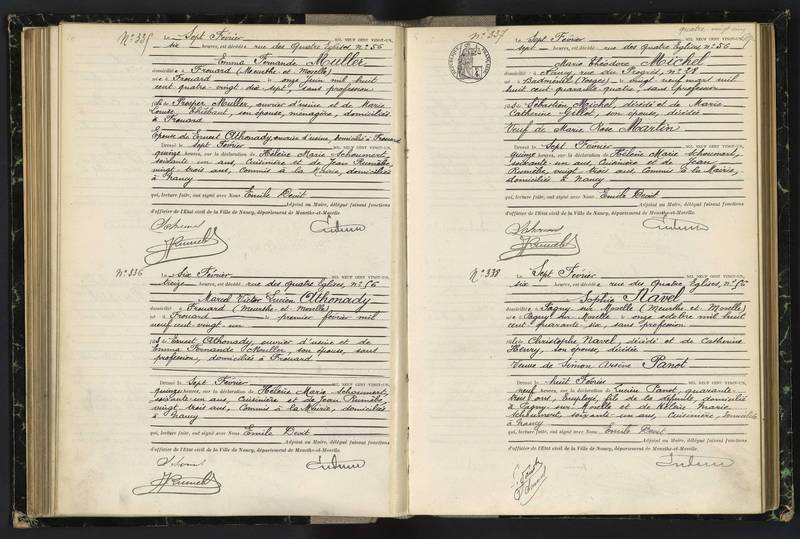 N° 335 Le Sept Février MIL NEUF CENT VINGT-UN,
six heures, est décédée rue des Quatre Eglises n° 56
Emma Fernande Muller
domiciliée à Frouard (Meurthe et Moselle)
née à Frouard le onze juin mil huit
cent quatre-vingt dix sept, sans profession
fille de Prosper Muller, ouvrier d'usine et de Marie
Louise Thiébaut, son épouse, ménagère, domiciliés
à Frouard
Epouse de Ernest Athonady, ouvrier d'usine, domicilié à Frouard
Dressé le sept Février MIL NEUF CENT VINGT-UN,
quinze heures, sur la déclaration de Hélène Marie Schoumert,
soixante un ans, Cuisinière et de Jean Rumèbe,
vingt-trois ans, Commis à la Mairie, domiciliés
à Nancy
qui, lecture faite, ont signé avec Nous Emile Devit
Adjoint au Maire, délégué faisant fonctions
d'officier de l'Etat civil de la Ville de Nancy, département de Meurthe-et-Moselle.
N° 336 Le six Février MIL NEUF CENT VINGT-UN,
treize heures, est décédé rue des Quatre Eglises, n° 56
Marcel Victor Lucien Athonady
domicilié à Frouard (Meurthe-et-Moselle)
né à Frouard le premier février mil
neuf cent vingt-un
fils de Ernest Athonady, ouvrier d'usine et de
Emma Fernande Muller, son épouse, sans
profession, domiciliés à Frouard
Dressé le Sept Février MIL NEUF CENT VINGT-UN,
quinze heures, sur la déclaration de Hélène Marie Schoumert,
soixante un ans, Cuisinière et de Jean Rumèbe,
vingt-trois ans, Commis à la Mairie, domiciliés
à Nancy
qui, lecture faite, ont signé avec Nous Emile Devit
Adjoint au Maire, délégué faisant fonctions
d'officier de l'Etat civil de la Ville de Nancy, département de Meurthe-et-Moselle.
quatre-vingt
N° 337 Le Sept Février MIL NEUF CENT VINGT-UN,
sept heures, est décédé rue des Quatre Eglises n° 56
Marie Théodore Michel
domicilié à Nancy, rue du Progrès, n° 98
né à Badménil (Vosges) le vingt neuf mars mil
huit cent quarante quatre, sans profession
fils de Sébastien Michel, décédé et de Marie
Catherine Gillot, son épouse, décédée
Veuf de Marie Rose Martin
Dressé le Sept Février MIL NEUF CENT VINGT-UN,
quinze heures, sur la déclaration de Hélène Marie Schoumert,
soixante un ans, Cuisinière et de Jean
Rumèbe, vingt-trois ans, Commis à la Mairie,
domiciliés à Nancy
qui, lecture faite, ont signé avec Nous Emile Devit
Adjoint au Maire, délégué faisant fonctions
d'officier de l'Etat civil de la Ville de Nancy, département de Meurthe-et-Moselle.
N° 338 Le Sept Février MIL NEUF CENT VINGT-UN,
six heures, est décédée rue des Quatre Eglises, n° 56
Sophie Navel
domiciliée à Pagny sur Moselle (Meurthe-et-Moselle)
née à Pagny sur Moselle le onze octobre mil huit
cent quarante six, sans profession
fille de Christophe Navel, décédé et de Catherine
Henry, son épouse, décédée
Veuve de Simon Arsène Panot
Dressé le huit Février MIL NEUF CENT VINGT-UN,
neuf heures, sur la déclaration de Lucien Panot, quarante-
trois ans, Employé, fils de la défunte, domicilié
à Pagny sur Moselle et de Hélène Marie
Schoumert, soixante un ans, Cuisinière, domiciliée
à Nancy
qui, lecture faite, ont signé avec Nous Emile Devit
Adjoint au Maire, délégué faisant fonctions
d'officier de l'Etat civil de la Ville de Nancy, département de Meurthe-et-Moselle.